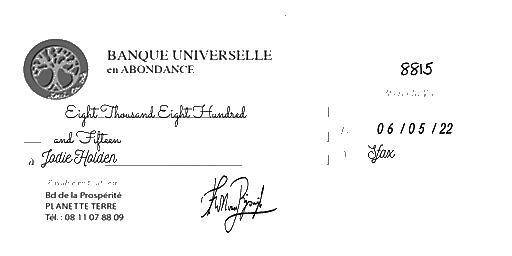 BANQUE UNIVERSELLE
en ABONDANCE
8815
Eight Thousand Eight Hundred
and Fifteen
06/05/22
à Jodie Holden
Sfax
Bd de la Prospérité
PLANETTE TERRE
Tél. : 08 11 07 88 09